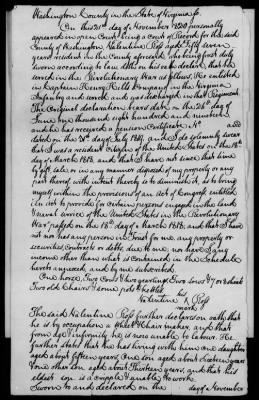 Washington County in the State of Virginia Sc.
On this 21st day of November 1820 personally
appeared in open Court being a Court of Record for the said
County of Washington Valentine Poss aged fifty seven
years resident in the County aforesaid, who being first duly
sworn according to law doth on his oath declare, that he
served in the Revolutionary War as follows, He enlisted
in Captain Henry Company in the Virginia
Infantry and continued until was discharged in the Regiment
The Original declaration bears date on the 26th day of
June one thousand eight hundred and nineteen
and he has received a pension Certificate No.
dated on the day of July 1819 and I do solemnly swear
that I was a resident Citizen of the United States on the 18th
day of March 1818, and that I have not since that time
by gift, sale, or in any manner disposed of my property or any
part thereof, with intent thereby so to diminish it, as to bring
myself within the provisions of an Act of Congress entitled
"An act to provide for certain persons engaged in the land
& naval service of the United States in the Revolutionary
War" passed on the 18th day of March 1818; and that I have
not nor has any person in trust for me any property or
securities, Contracts or debts, due to me, nor have I any
income other than what is contained in the Schedule
hereto annexed, and by me subscribed.
One horse, Two Cows & two yearlings, Two Sows & 7 or 8 shoats
Two old Chairs & some pot mettle
his
Valentine X Poss
mark
The said Valentine Poss further declares on oath, that
he is by occupation a Chair maker, and that
from his infirmity he is now unable to labour. He
further states that he has living with him one daughter
aged about fifteen years, One son aged about sixteen years
& one other son aged about Thirteen years, and that his
eldest son is a cripple & unable to work.
Sworn to and declared on the day of November